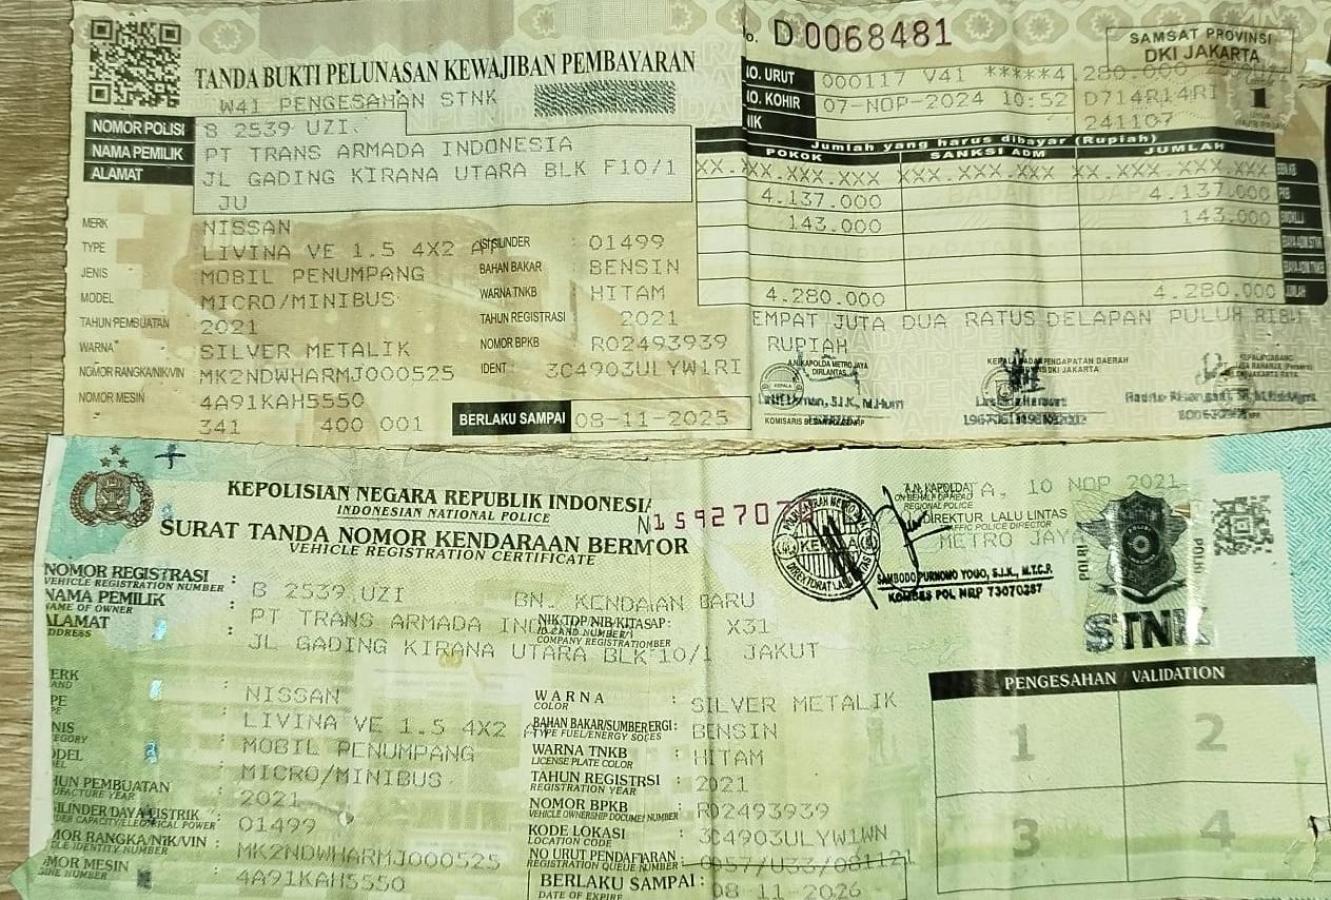 No. D 0068481
SAMSAT PROVINSI
DKI JAKARTA
TANDA BUKTI PELUNASAN KEWAJIBAN PEMBAYARAN
W41 PENGESAHAN STNK
NO. URUT 000117 V41 *****4.280.00
NO. KOHIR 07-NOP-2024 10:52 D714R14RI
NIK 241107
1
NOMOR POLISI B 2539 UZI
NAMA PEMILIK PT TRANS ARMADA INDONESIA
ALAMAT JL GADING KIRANA UTARA BLK F10/1
JU
Jumlah yang harus dibayar (Rupiah)
POKOK SANKSI ADM JUMLAH
XX.XXX.XXX XXX.XXX.XXX XX.XXX.XXX
4.137.000 4.137.000
143.000 143.000
4.280.000 4.280.000
EMPAT JUTA DUA RATUS DELAPAN PULUH RIBU
RUPIAH
MERK NISSAN
TYPE LIVINA VE 1.5 4X2 AT
ISI SILINDER : 01499
JENIS MOBIL PENUMPANG
BAHAN BAKAR : BENSIN
MODEL MICRO/MINIBUS
WARNA TNKB : HITAM
TAHUN PEMBUATAN 2021
TAHUN REGISTRASI 2021
WARNA SILVER METALIK
NOMOR BPKB R02493939
NOMOR RANGKA/NIK/VIN MK2NDWHARMJ000525
IDENT : 3C4903ULYW1RI
NOMOR MESIN 4A91KAH5550
341 400 001
BERLAKU SAMPAI 08-11-2025
A.N. KAPOLDA METRO JAYA
DIRLANTAS
KEPOLISIAN NEGARA REPUBLIK INDONESIA
INDONESIAN NATIONAL POLICE
SURAT TANDA NOMOR KENDARAAN BERMOTOR
VEHICLE REGISTRATION CERTIFICATE
A, 10 NOP 2021
A.N. KAPOLDA
ON BEHALF OF HEAD
REGIONAL POLICE
DIREKTUR LALU LINTAS
TRAFFIC POLICE DIRECTOR
METRO JAYA
SAMBODO PURNOMO YOGO, S.I.K., M.T.C.P.
KOMBES POL NRP 73070287
POLRI
POLRI
STNK
NOMOR REGISTRASI : B 2539 UZI BN. KENDAIAN BARU
VEHICLE REGISTRATION NUMBER
NAMA PEMILIK : PT TRANS ARMADA IND
NAME OF OWNER
NIK/TDP/NIB/KITAS AP: X31
ID CARD NUMBER/
COMPANY REGISTRATION
ALAMAT : JL GADING KIRANA UTARA BLK 10/1 JAKUT
ADDRESS
MERK : NISSAN
WARNA : SILVER METALIK
COLOR
LIVINA VE 1.5 4X2 AT
BAHAN BAKAR/SUMBER ERGI : BENSIN
TYPE FUEL/ENERGY SOCES
MOBIL PENUMPANG
WARNA TNKB : HITAM
LICENSE PLATE COLOR
MICRO/MINIBUS
TAHUN REGISTRSI : 2021
REGISTRATION YEAR
HUN PEMBUATAN : 2021
NOMOR BPKB : R02493939
VEHICLE OWNERSHIP DOCUMENT NUMBER
01499
KODE LOKASI : 3C4903ULYW1WN
LOCATION CODE
MOR RANGKA/NIK/VIN : MK2NDWHARMJ000525
NO URUT PENDAFARAN : 0957/033/081121
REGISTRATION QUEUE NUMBER
MOR MESIN : 4A91KAH5550
BERLAKU SAMPAI : 08 11-2026
DATE OF EXPIRE
PENGESAHAN / VALIDATION
1 2
3 4